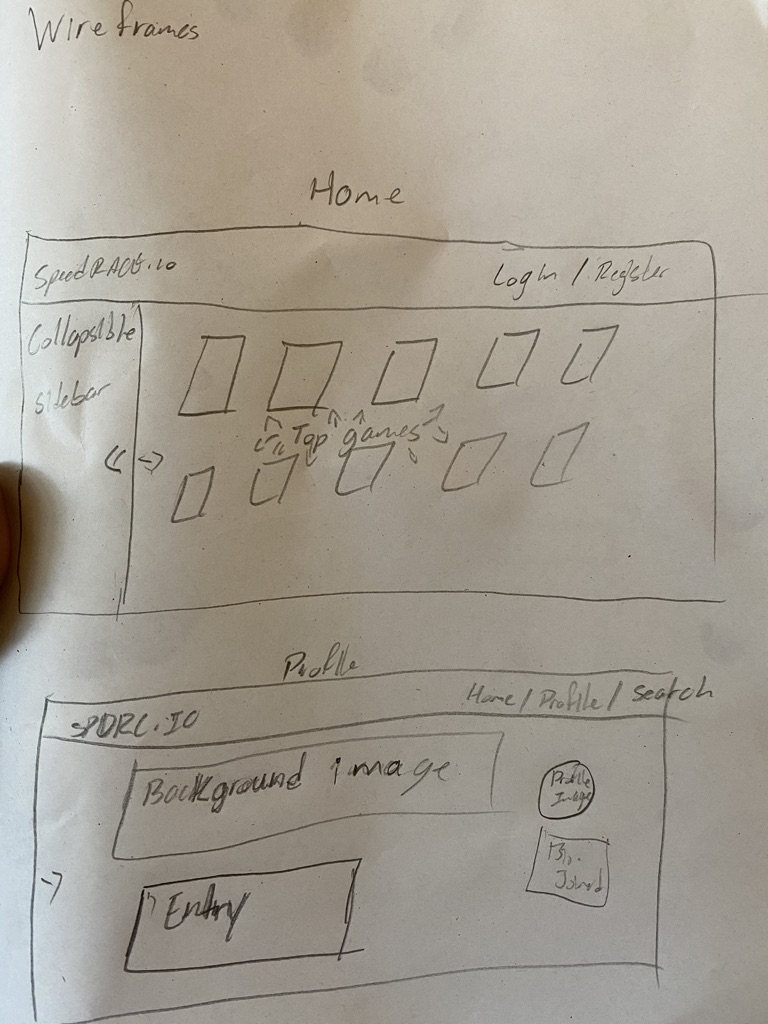 Wireframes
Home
SpeedRACE.io
Login / Register
Collapsible
sidebar
Top games
Profile
SPDRC.IO
Home / Profile / search
Background image
Profile
Image
Joined
Entry